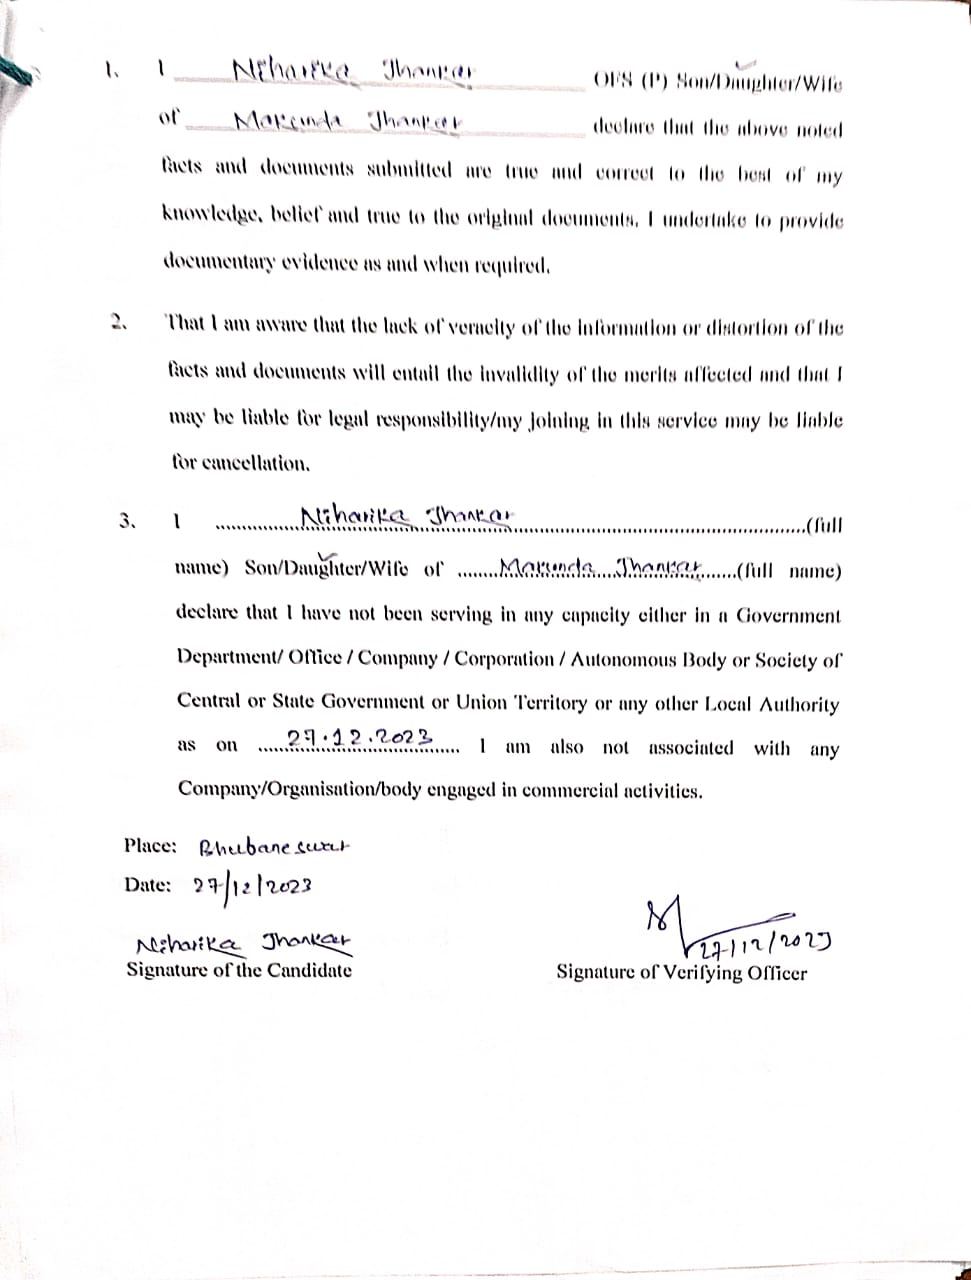 1. I Niharika Jhankar OFS (P) Son/Daughter/Wife
of Makunda Jhankar declare that the above noted
facts and documents submitted are true and correct to the best of my
knowledge, belief and true to the original documents. I undertake to provide
documentary evidence as and when required.
2. That I am aware that the lack of veracity of the information or distortion of the
facts and documents will entail the invalidity of the merits affected and that I
may be liable for legal responsibility/my joining in this service may be liable
for cancellation.
3. I ..............Niharika Jhankar..............(full
name) Son/Daughter/Wife of ........Makunda....Jhankar.......(full name)
declare that I have not been serving in any capacity either in a Government
Department/ Office / Company / Corporation / Autonomous Body or Society of
Central or State Government or Union Territory or any other Local Authority
as on .....27.12.2023..... I am also not associated with any
Company/Organisation/body engaged in commercial activities.
Place: Bhubaneswar
Date: 27/12/2023
27/12/2023
Niharika Jhankar
Signature of the Candidate Signature of Verifying Officer